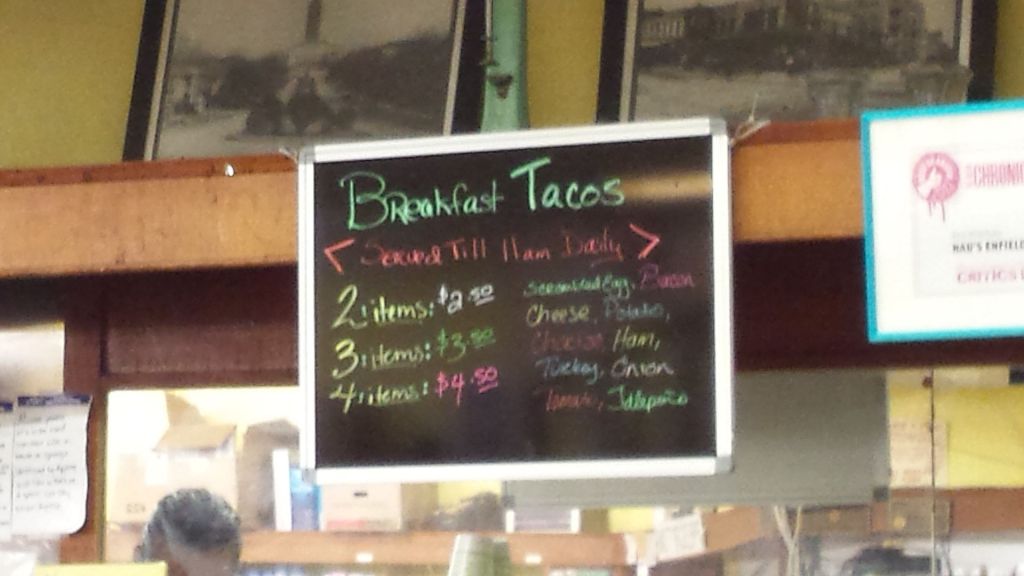 Breakfast Tacos
< Served Till 11am Daily >
2 items: $2.50
3 items: $3.50
4 items: $4.50
Scrambled Egg, Bacon
Cheese, Potato,
Chorizo, Ham,
Turkey, Onion
Tomato, Jalapeño
CHRONI
CRITICS